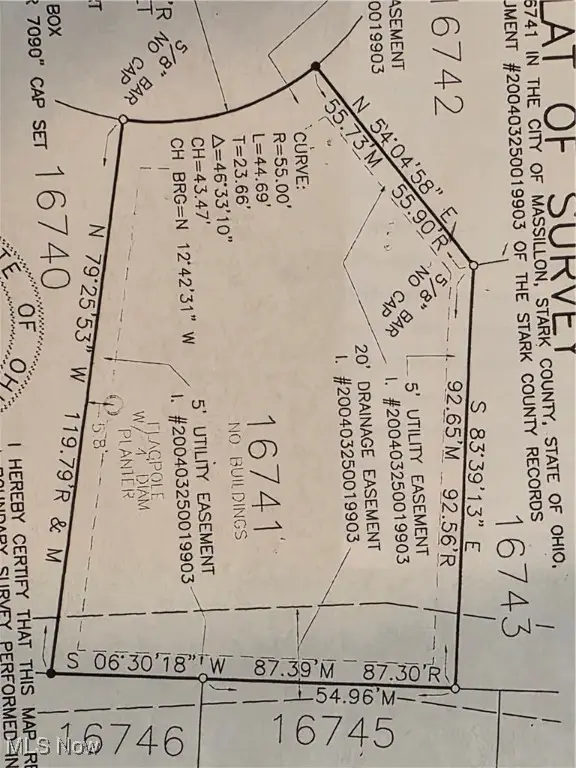 LAT OF SURVEY
6741 IN THE CITY OF MASSILLON, STARK COUNTY, STATE OF OHIO,
UMENT #200403250019903 OF THE STARK COUNTY RECORDS
16742
16743
ASEMENT
0019903
5/8" BAR
NO CAP
BOX
7090" CAP SET
16740
N 54°04'58" E
55.73'M 55.90'R
5/8" BAR
NO CAP
S 83°39'13" E
92.65'M 92.56'R
CURVE:
R=55.00'
L=44.69'
T=23.66'
Δ=46°33'10"
CH=43.47'
CH BRG=N 12°42'31" W
5' UTILITY EASEMENT
I. #200403250019903
20' DRAINAGE EASEMENT
I. #200403250019903
16741
NO BUILDINGS
5' UTILITY EASEMENT
I. #200403250019903
FLAGPOLE
W/ 4' DIAM
PLANTER
5.8'
N 79°25'53" W 119.79'R & M
S 06°30'18" W 87.39'M 87.30'R
54.96'M
16746
16745
TE OF OHI
I HEREBY CERTIFY THAT THIS MAP RE
BOUNDARY SURVEY PERFORMED IN
MLS Now